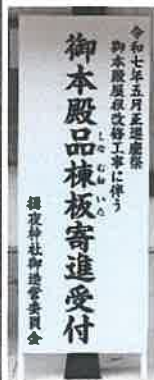 令和七年五月正遷座祭
御本殿屋根改修工事に伴う
御本殿品棟板寄進受付
しなむねいた
夜神社御造営委員会